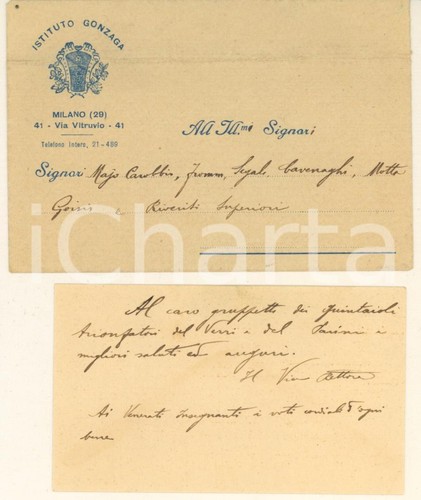 ISTITUTO GONZAGA
MILANO (29)
41 - Via Vitruvio - 41
Telefono Interc. 21-489
All' Ill.mi Signori
Signori Majo Carobbio, Fromm, Segale, Cavenaghi, Motta
Goisis e Riveriti Superiori
iCharta
Al caro gruppetto dei quintaioli
trionfatori del Verri e del Parini i
migliori saluti ed auguri.
Il Vice Rettore
Ai Venerati Insegnanti i voti cordiali d'ogni
bene